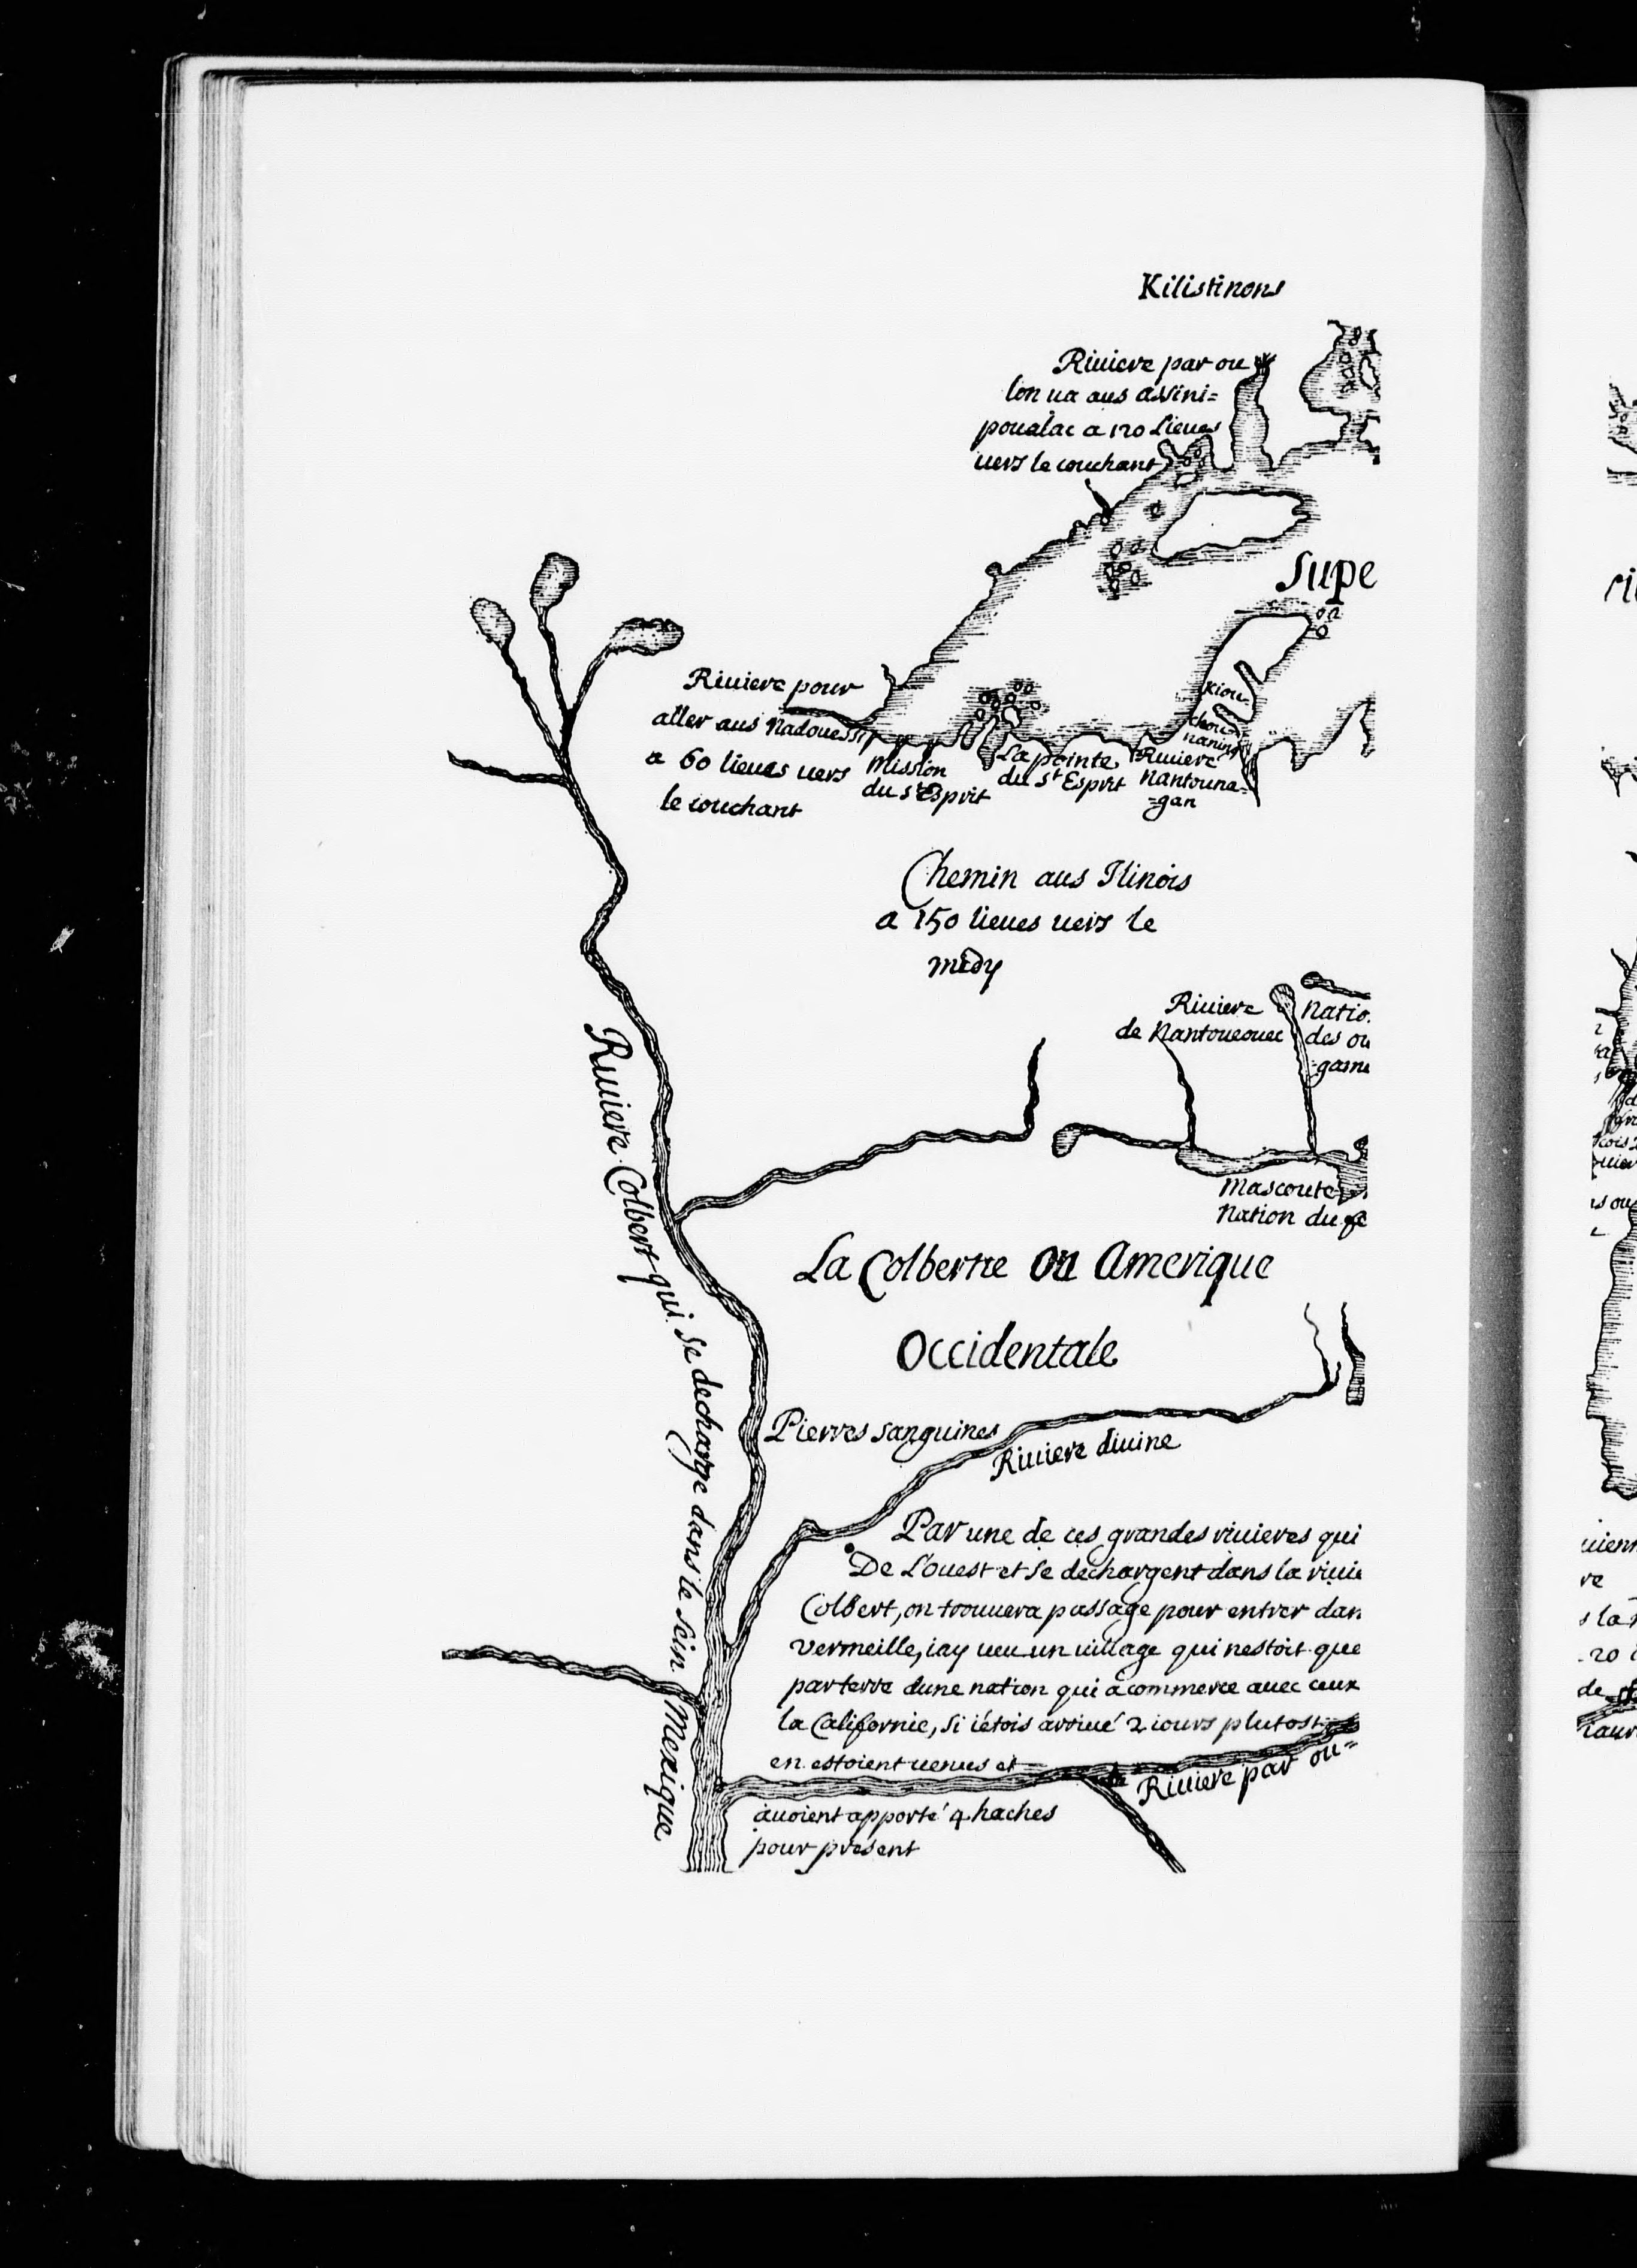 Kilistinons
Riuiere par ou
lon ua aus assini=
poualac a 120 lieues
uers le couchant
Supe
Riuiere pour
aller aus Nadouessi
a 60 lieues uers
le couchant
Mission
du st Esprit
La pointe
du st Esprit
Kiou-
chou-
naning
Riuiere
Nantouna=
=gan
Chemin aus Ilinois
a 150 lieues uers le
midy
Riuiere
de Nantoueouec
Natio
des ou
=gami
Mascoute
Nation du fe
Riuiere Colbert qui se decharge dans le sein Mexique
La Colbertie ou Amerique
Occidentale
Pierres sanguines
Riuiere diuine
Par une de ces grandes riuieres qui
De L'ouest et se dechargent dans la riuie
Colbert, on trouuera passage pour entrer dan
vermeille, iay ueu un uillage qui nestoit que
par terre dune nation qui a commerce auec ceux
la Californie, si i'étois arriué 2 iours plutost
en estoient uenus et
auoient apporté 4 haches
pour present
Riuiere par ou=
uienn
re
s la
20
de